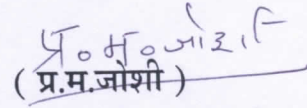 प्र॰म॰जोशी
( प्र.म.जोशी )